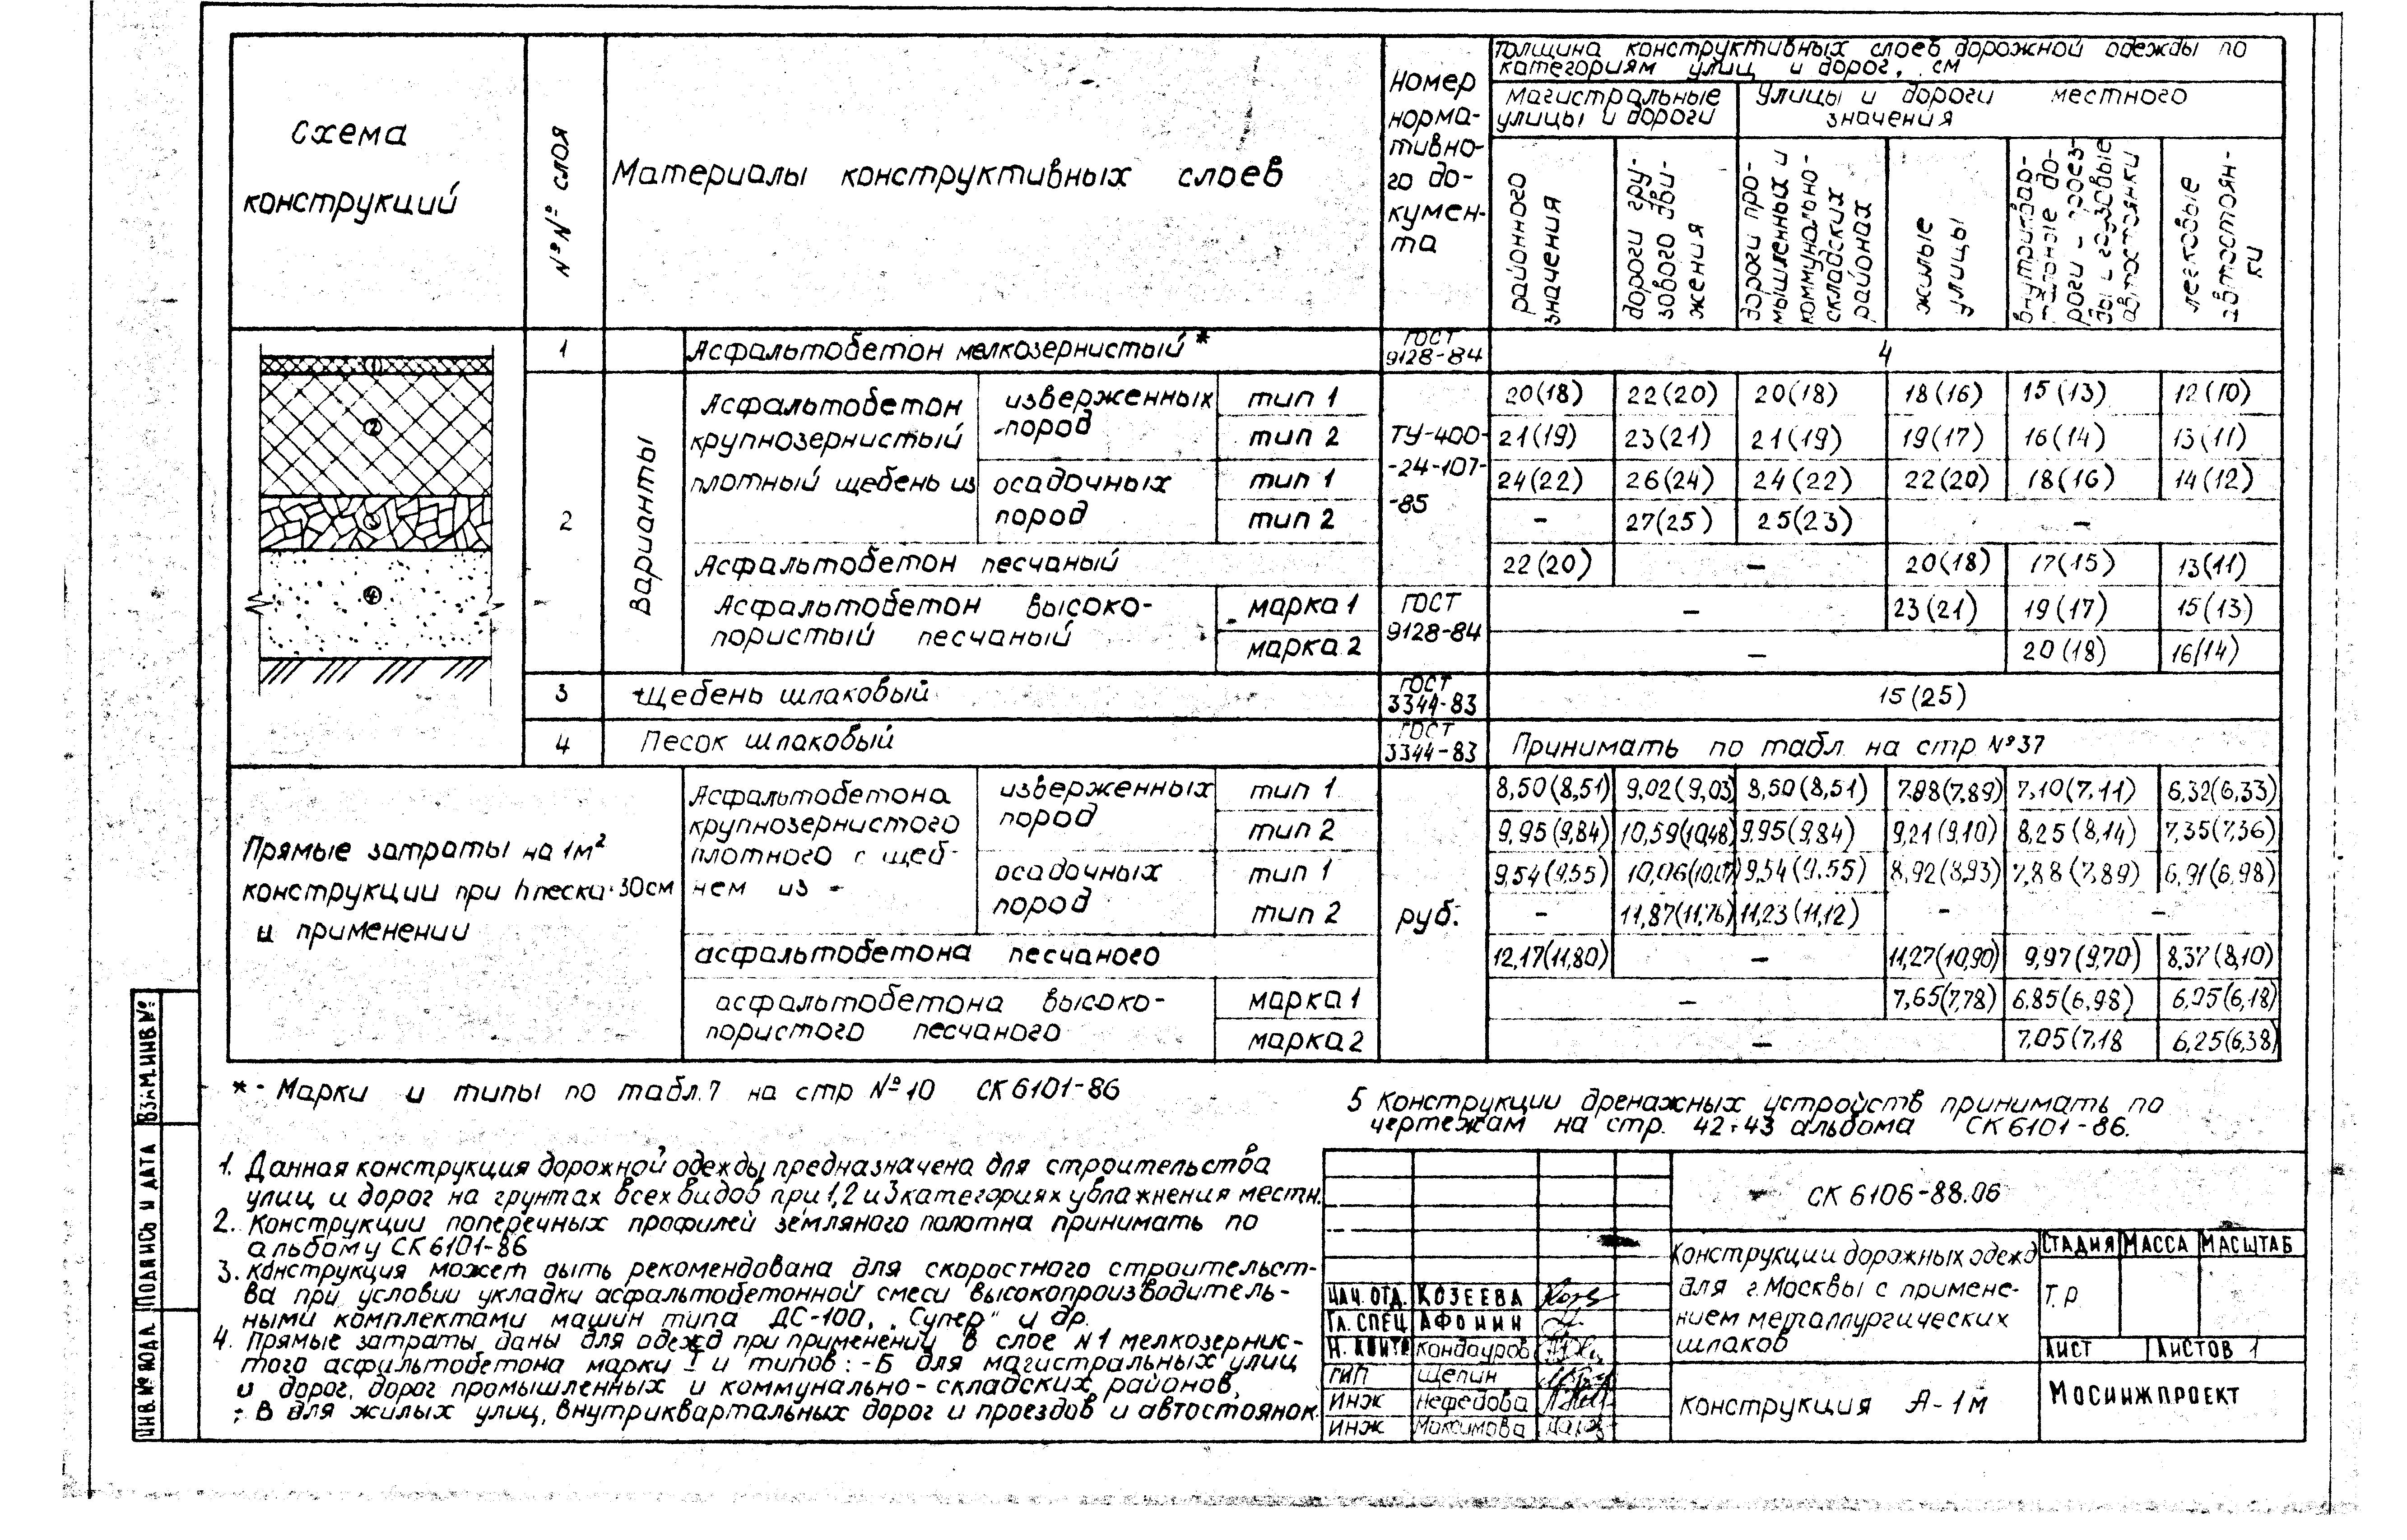 Схема
конструкций
№№ слоя
Материалы конструктивных слоев
Номер
норма-
тивно-
го до-
кумен-
та
Толщина конструктивных слоев дорожной одежды по
категориям улиц и дорог, см
Магистральные
улицы и дороги
Улицы и дороги местного
значения
районного
значения
дороги гру-
зового дви-
жения
дороги про-
мышленных и
коммунально-
складских
районах
жилые
улицы
внутриквар-
тальные до-
роги - проез-
ды и грузовые
автостоянки
легковые
автостоян-
ки
1 Асфальтобетон мелкозернистый* ГОСТ 9128-84 4
2 Варианты
Асфальтобетон
крупнозернистый
плотный щебень из
изверженных
пород
тип 1 20(18) 22(20) 20(18) 18(16) 15(13) 12(10)
тип 2 21(19) 23(21) 21(19) 19(17) 16(14) 13(11)
осадочных
пород
тип 1 24(22) 26(24) 24(22) 22(20) 18(16) 14(12)
тип 2 - 27(25) 25(23) -
ТУ-400-
-24-107-
-85
Асфальтобетон песчаный 22(20) - 20(18) 17(15) 13(11)
Асфальтобетон высоко-
пористый песчаный
марка 1 - 23(21) 19(17) 15(13)
марка 2 - 20(18) 16(14)
ГОСТ
9128-84
3 Щебень шлаковый ГОСТ 3344-83 15(25)
4 Песок шлаковый ГОСТ 3344-83 Принимать по табл. на стр №37
Прямые затраты на 1м²
конструкции при h песка-30см
и применении
Асфальтобетона
крупнозернистого
плотного с щеб-
нем из -
изверженных
пород
тип 1 8,50(8,51) 9,02(9,03) 8,50(8,51) 7,88(7,89) 7,10(7,11) 6,32(6,33)
тип 2 9,95(9,84) 10,59(10,48) 9,95(9,84) 9,21(9,10) 8,25(8,14) 7,35(7,36)
осадочных
пород
тип 1 9,54(9,55) 10,06(10,07) 9,54(9,55) 8,92(8,93) 7,88(7,89) 6,91(6,98)
тип 2 - 11,87(11,76) 11,23(11,12) - -
руб.
асфальтобетона песчаного 12,17(11,80) - 11,27(10,90) 9,97(9,70) 8,37(8,10)
асфальтобетона высоко-
пористого песчаного
марка 1 - 7,65(7,78) 6,85(6,98) 6,05(6,18)
марка 2 - 7,05(7,18 6,25(6,38)
* - Марки и типы по табл.7 на стр №10 СК 6101-86
1. Данная конструкция дорожной одежды предназначена для строительства
улиц и дорог на грунтах всех видов при 1,2 и 3 категориях увлажнения местн.
2. Конструкции поперечных профилей земляного полотна принимать по
альбому СК 6101-86
3. Конструкция может быть рекомендована для скоростного строительст-
ва при условии укладки асфальтобетонной смеси высокопроизводитель-
ными комплектами машин типа ДС-100, „Супер" и др.
4. Прямые затраты даны для одежд при применении в слое №1 мелкозернис-
того асфальтобетона марки I и типов: -Б для магистральных улиц
и дорог, дорог промышленных и коммунально-складских районов,
; В для жилых улиц, внутриквартальных дорог и проездов и автостоянок.
5 Конструкции дренажных устройств принимать по
чертежам на стр. 42÷43 альбома СК 6101-86.
СК 6106-88.06
Конструкции дорожных одежд
для г.Москвы с примене-
нием металлургических
шлаков
Стадия Масса Масштаб
Т.Р
Лист Листов 1
Конструкция А-1м
Мосинжпроект
Нач. отд. Козеева
Гл. спец Афонин
Н. контр Кондауров
ГИП Щепин
Инж Нефедова
Инж Максимова
Взам.инв №
Подпись и дата
Инв.№ подл.